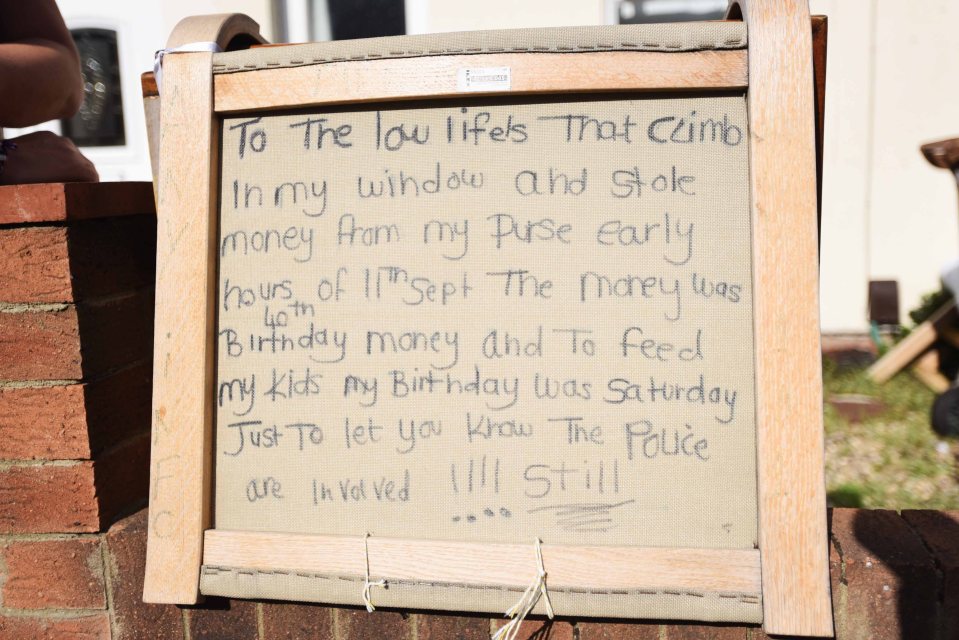 To The low lifels That Climb
In my window and stole
money from my Purse early
hours of 11th Sept The money was
40th
Birthday money and To feed
my Kids my Birthday was Saturday
Just To let you Know The Police
are Involved !!!! Still